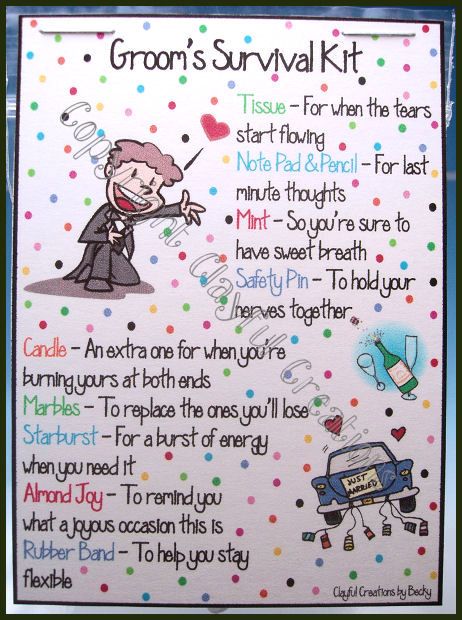 Groom's Survival Kit
Tissue – For when the tears
start flowing
Note Pad & Pencil – For last
minute thoughts
Mint – So you're sure to
have sweet breath
Safety Pin – To hold your
nerves together
Candle – An extra one for when you're
burning yours at both ends
Marbles – To replace the ones you'll lose
Starburst – For a burst of energy
when you need it
Almond Joy – To remind you
what a joyous occasion this is
Rubber Band – To help you stay
flexible
JUST
MARRIED
Clayful Creations by Becky
Copyright Clayful Creations